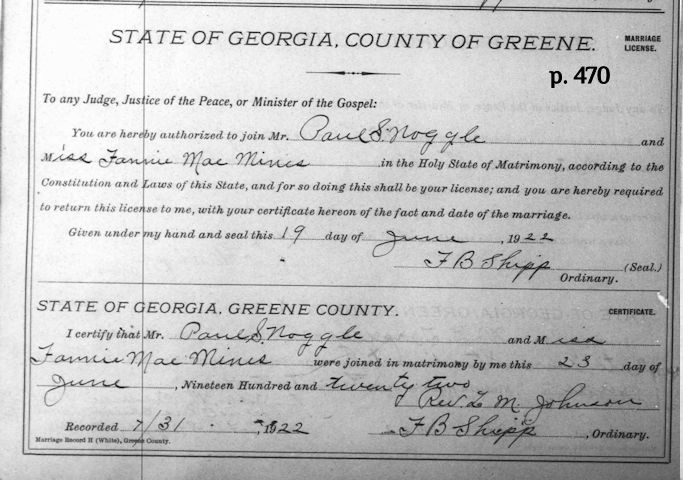 STATE OF GEORGIA, COUNTY OF GREENE.
MARRIAGE
LICENSE.
p. 470
To any Judge, Justice of the Peace, or Minister of the Gospel:
You are hereby authorized to join Mr. Paul S. Noggle and
Miss Fannie Mae Mines in the Holy State of Matrimony, according to the
Constitution and Laws of this State, and for so doing this shall be your license; and you are hereby required
to return this license to me, with your certificate hereon of the fact and date of the marriage.
Given under my hand and seal this 19 day of June, 1922
F B Shipp (Seal.)
Ordinary.
STATE OF GEORGIA, GREENE COUNTY.
CERTIFICATE.
I certify that Mr. Paul S. Noggle and Miss
Fannie Mae Mines were joined in matrimony by me this 23 day of
June, Nineteen Hundred and twenty two
Rev L. M. Johnson
Recorded 7/31, 1922 F B Shipp, Ordinary.
Marriage Record H (White), Greene County.